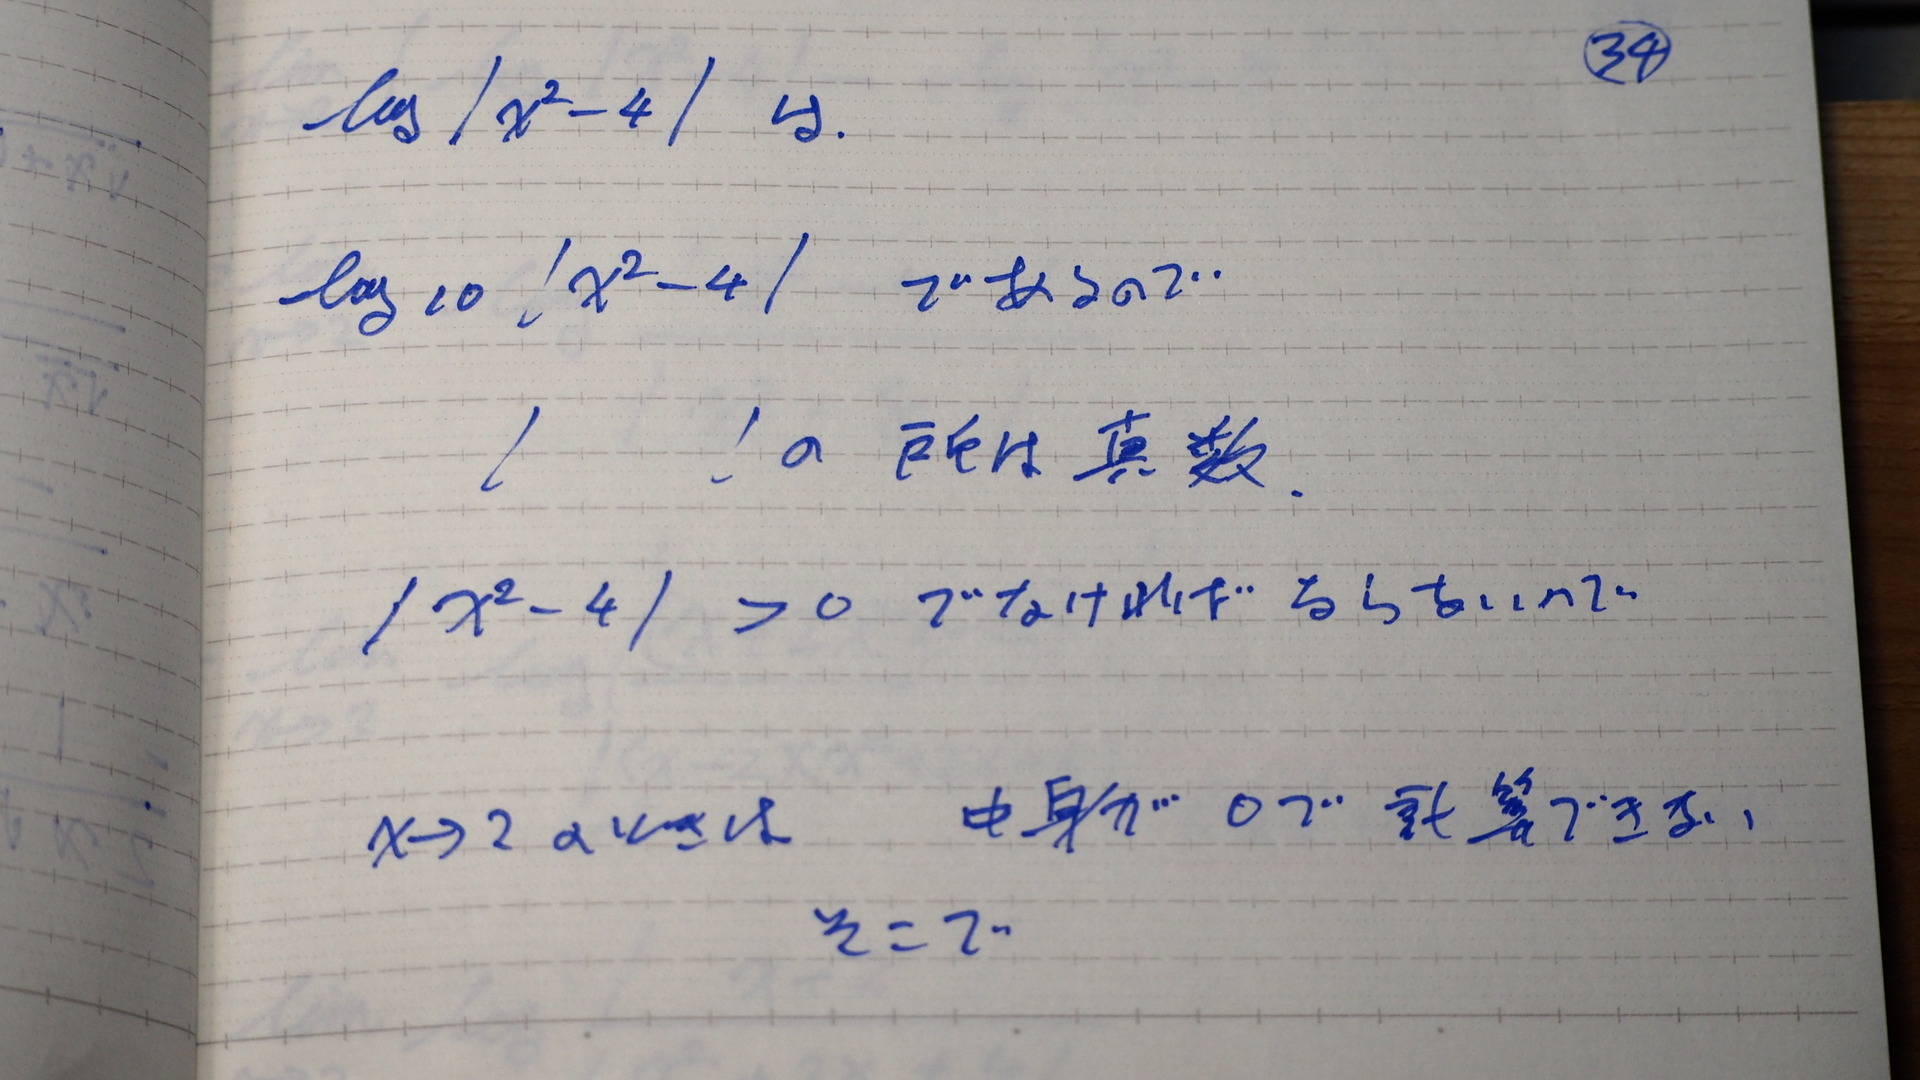 34
log|x²-4| は.
log10 |x²-4| であるので
| |の 所は 真数.
|x²-4| >0 でなければ ならないので
x→2 のときは 中身が 0で 計算できない
そこで